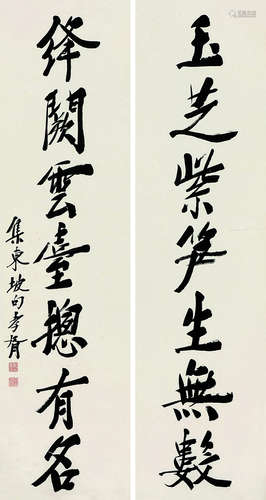 玉芝紫笋生無數
絳闕雲臺總有名
集東坡句孝胥